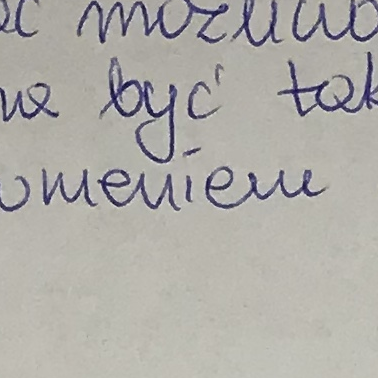 ać możliwo
na być tak
omieniem